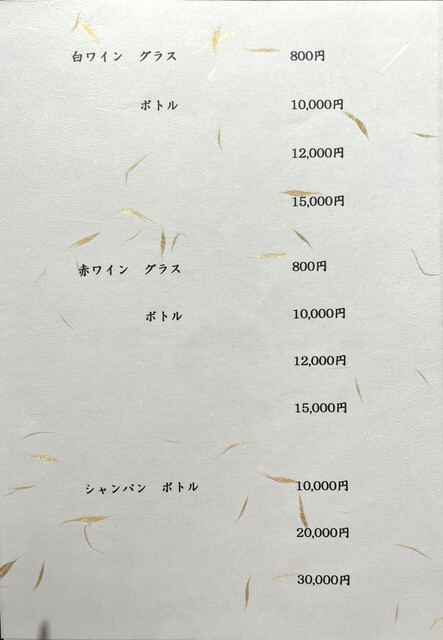 白ワイン グラス 800円
ボトル 10,000円
12,000円
15,000円
赤ワイン グラス 800円
ボトル 10,000円
12,000円
15,000円
シャンパン ボトル 10,000円
20,000円
30,000円